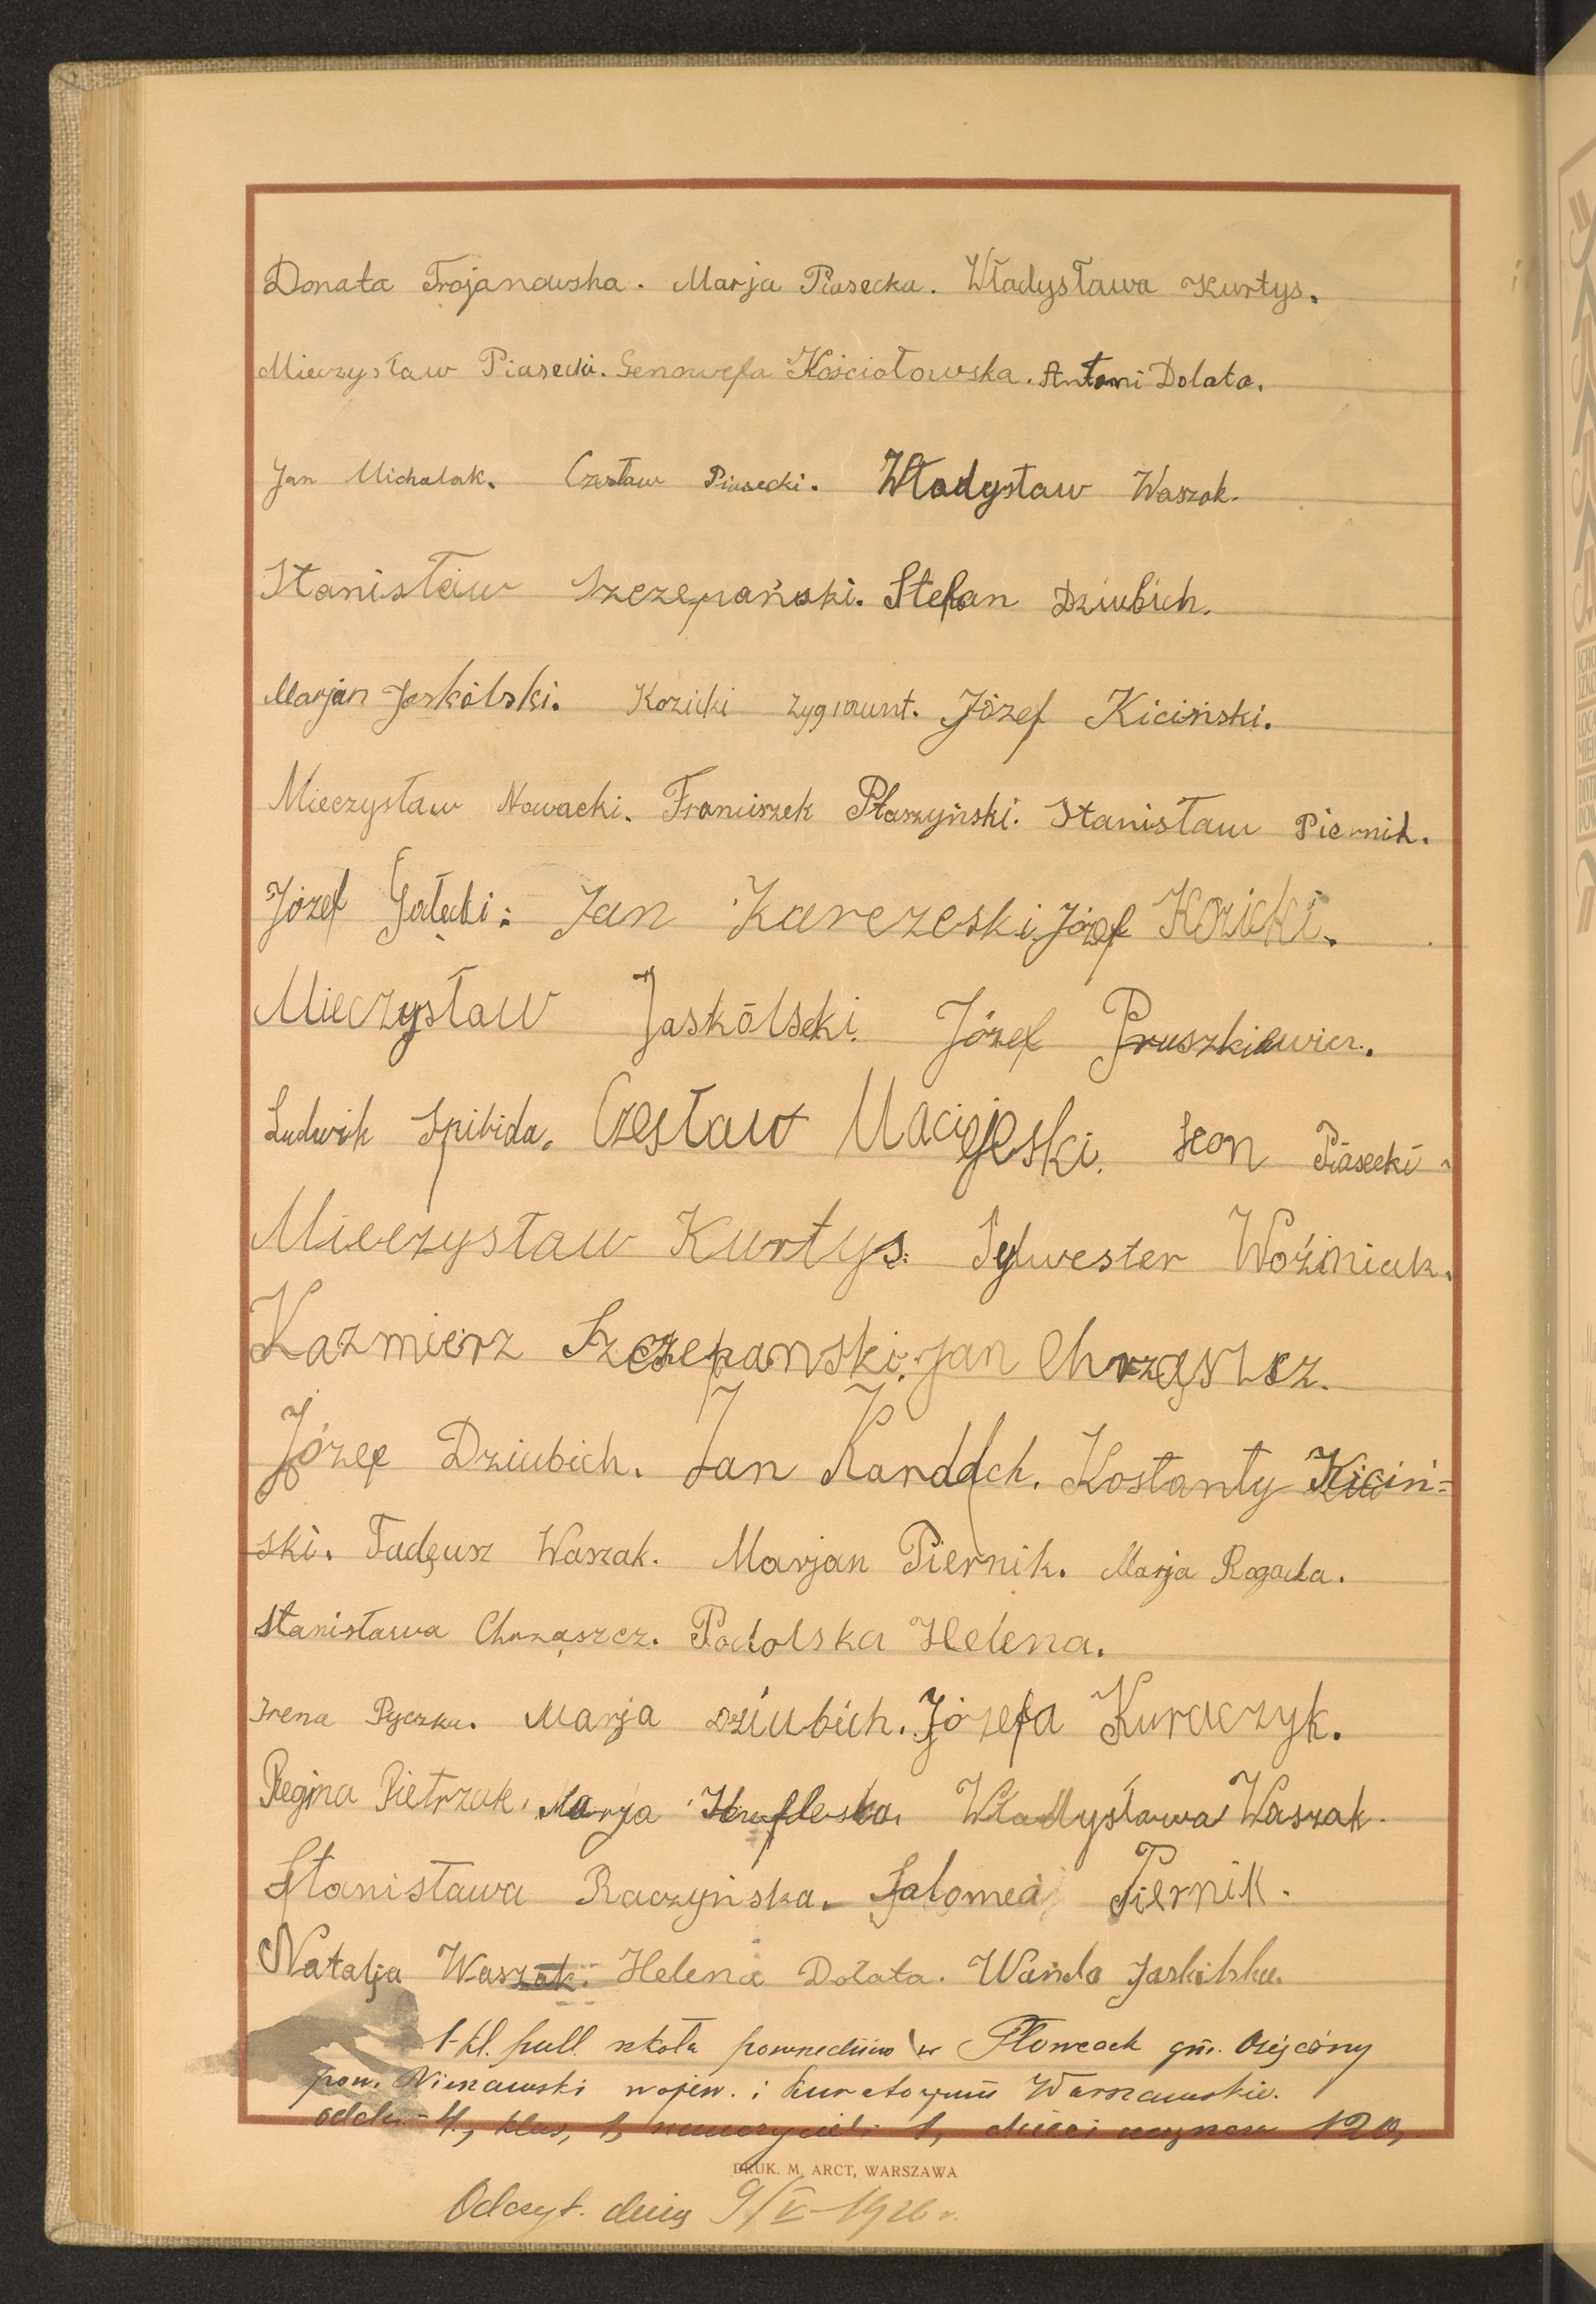 Donata Trojanowska. Marja Piasecka. Władysława Kurtys.
Mieczysław Piasecki. Genowefa Kościołowska. Antoni Dolata.
Jan Michalak. Czesław Piasecki. Władysław Waszak.
Stanisław Szczepański. Stefan Dziubich.
Marjan Jaskólski. Kozicki Zygmunt. Józef Kiciński.
Mieczysław Nowacki. Franciszek Płaszyński. Stanisław Piernik.
Józef Gałecki. Jan Karczeski. Józef Kozicki.
Mieczysław Jaskólseki. Józef Pruszkiewicz.
Ludwik Spibida. Czesław Maciejeski. Leon Piasecki.
Mieczysław Kurtys. Sylwester Woźniak.
Kazmierz Szczepanski. Jan Chrząszcz.
Józef Dziubich. Jan Kostanty Kiciń=
ski. Tadeusz Waszak. Marjan Piernik. Marja Rogacka.
Stanisława Chrząszcz. Podolska Helena.
Irena Pyczka. Marja Dziubich. Józefa Kuraczyk.
Regina Pietrzak. Marja Władysława Waszak.
Stanisława Raczyńska. Salomea Piernik.
Natalja Waszak. Helena Dolata. Wanda Jaskólska.
1-kl. publ. szkoła powszechna w Płowcach gm. Osięciny
pow. Nieszawski wojew. i kuratorjum Warszawskie.
oddz. 4, klas, 1, nauczycieli 1, dzieci 120,
DRUK. M. ARCT, WARSZAWA
Odczyt. dnia 9/V-1926 r.